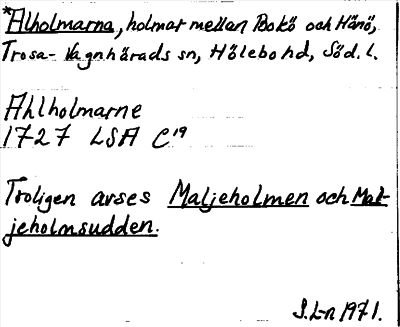 *Alholmarna, holmar mellan Bokö och Hånö,
Trosa-Vagnhärads sn, Hölebo hd, Söd. l.
Ahlholmarne
1727 LSA C19
Troligen avses Maljeholmen och Mal-
jeholmsudden.
S. L-n 1971.